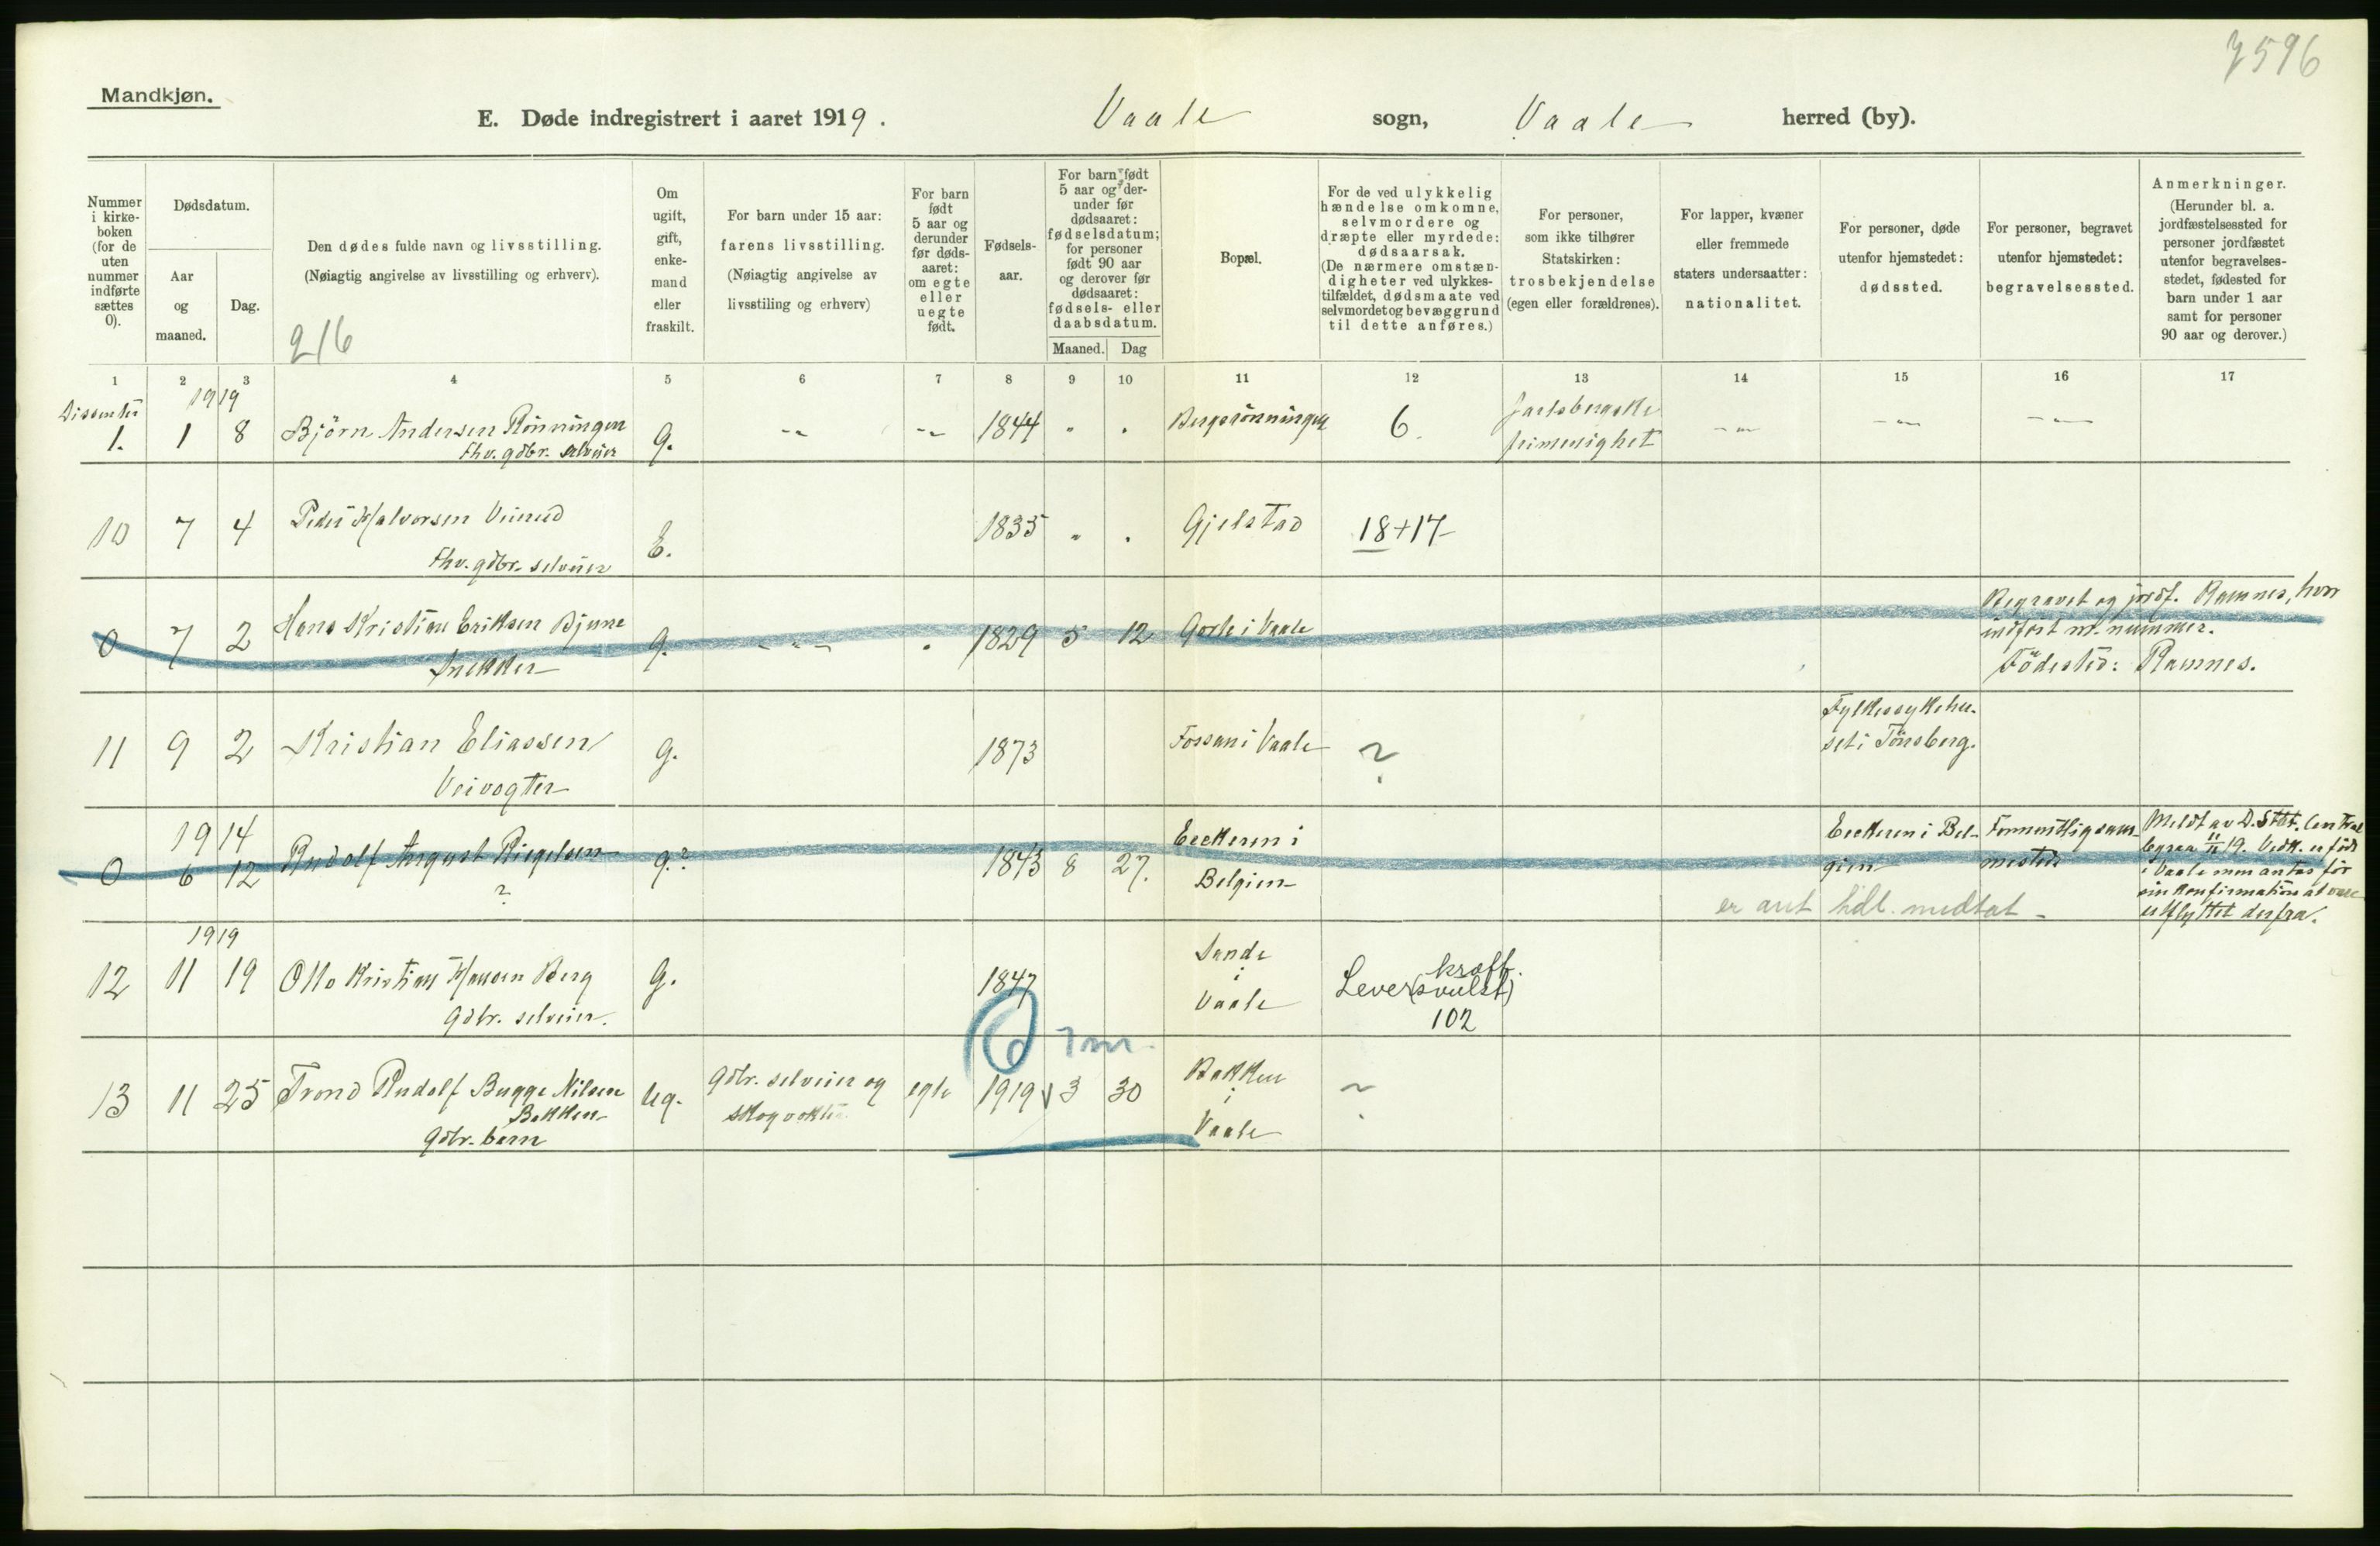 7596
Mandkjøn.
E. Døde indregistrert i aaret 1919. Vaale sogn, Vaale herred (by).
Nummer i kirkeboken (for de uten nummer indførte sættes 0).
Dødsdatum.
Aar og maaned.
Dag.
Den dødes fulde navn og livsstilling.
(Nøiagtig angivelse av livsstilling og erhverv).
216
Om ugift, gift, enkemand eller fraskilt.
For barn under 15 aar: farens livsstilling.
(Nøiagtig angivelse av livsstiling og erhverv)
For barn født 5 aar og derunder før dødsaaret: om egte eller uegte født.
Fødselsaar.
For barn født 5 aar og derunder før dødsaaret: fødselsdatum; for personer født 90 aar og derover før dødsaaret: fødsels- eller daabsdatum.
Maaned. Dag
Bopæl.
For de ved ulykkelig hændelse omkomne, selvmordere og dræpte eller myrdede: dødsaarsak.
(De nærmere omstændigheter ved ulykkestilfældet, dødsmaate ved selvmordet og bevæggrund til dette anføres.)
For personer, som ikke tilhører Statskirken: trosbekjendelse (egen eller forældrenes).
For lapper, kvæner eller fremmede staters undersaatter: nationalitet.
For personer, døde utenfor hjemstedet: dødssted.
For personer, begravet utenfor hjemstedet: begravelsessted.
Anmerkninger.
(Herunder bl. a. jordfæstelsessted for personer jordfæstet utenfor begravelsesstedet, fødested for barn under 1 aar samt for personer 90 aar og derover.)
1 2 3 4 5 6 7 8 9 10 11 12 13 14 15 16 17
Dissenter 1919
1. 1 8 Björn Andersen Rönningen g. -"- -"- 1844 " . Bergsrönningen 6. Jarlsbergske
Fhv. gdbr. selveier frimenighet -"- -"- -"-
10 7 4 Peder Halvorsen Vierud E. 1835 " . Gjelstad 18+17
Fhv. gdbr. selveier
0 7 2 Hans Kristian Eriksen Bjune g. -"- . 1829 5 12 Gorle i Vaale Begravet og jordf. Ramnes, hvor
Snekker indført m. nummer.
Födested: Ramnes.
11 9 2 Kristian Eliassen g. 1873 Fossan i Vaale ? Fylkessykehu-
Veivogter set i Tönsberg.
1914
0 6 12 Rudolf August g.? 1843 8 27. Eeckeren i
? Belgien
Eeckeren i Bel-
gien
mested
Meldt av D. Stat. Central
byraa 11/11 19. Vedk. er född
i Vaale men antas för
sin konfirmation at være
utflyttet derfra.
er ant hdl. medtat -
1919
12 11 19 Otto Kristian Hansen Berg g. 1847 Sande
Gdbr. selveier. i
Vaale
kræft.
Lever(svulst)
102
0 7 m.
13 11 25 Trond Rudolf Bugge Nilsen Ug. Gdbr. selveier og egte 1919 3 30 Bakken ?
Bakken skogvokter i
Gdbr. barn Vaale